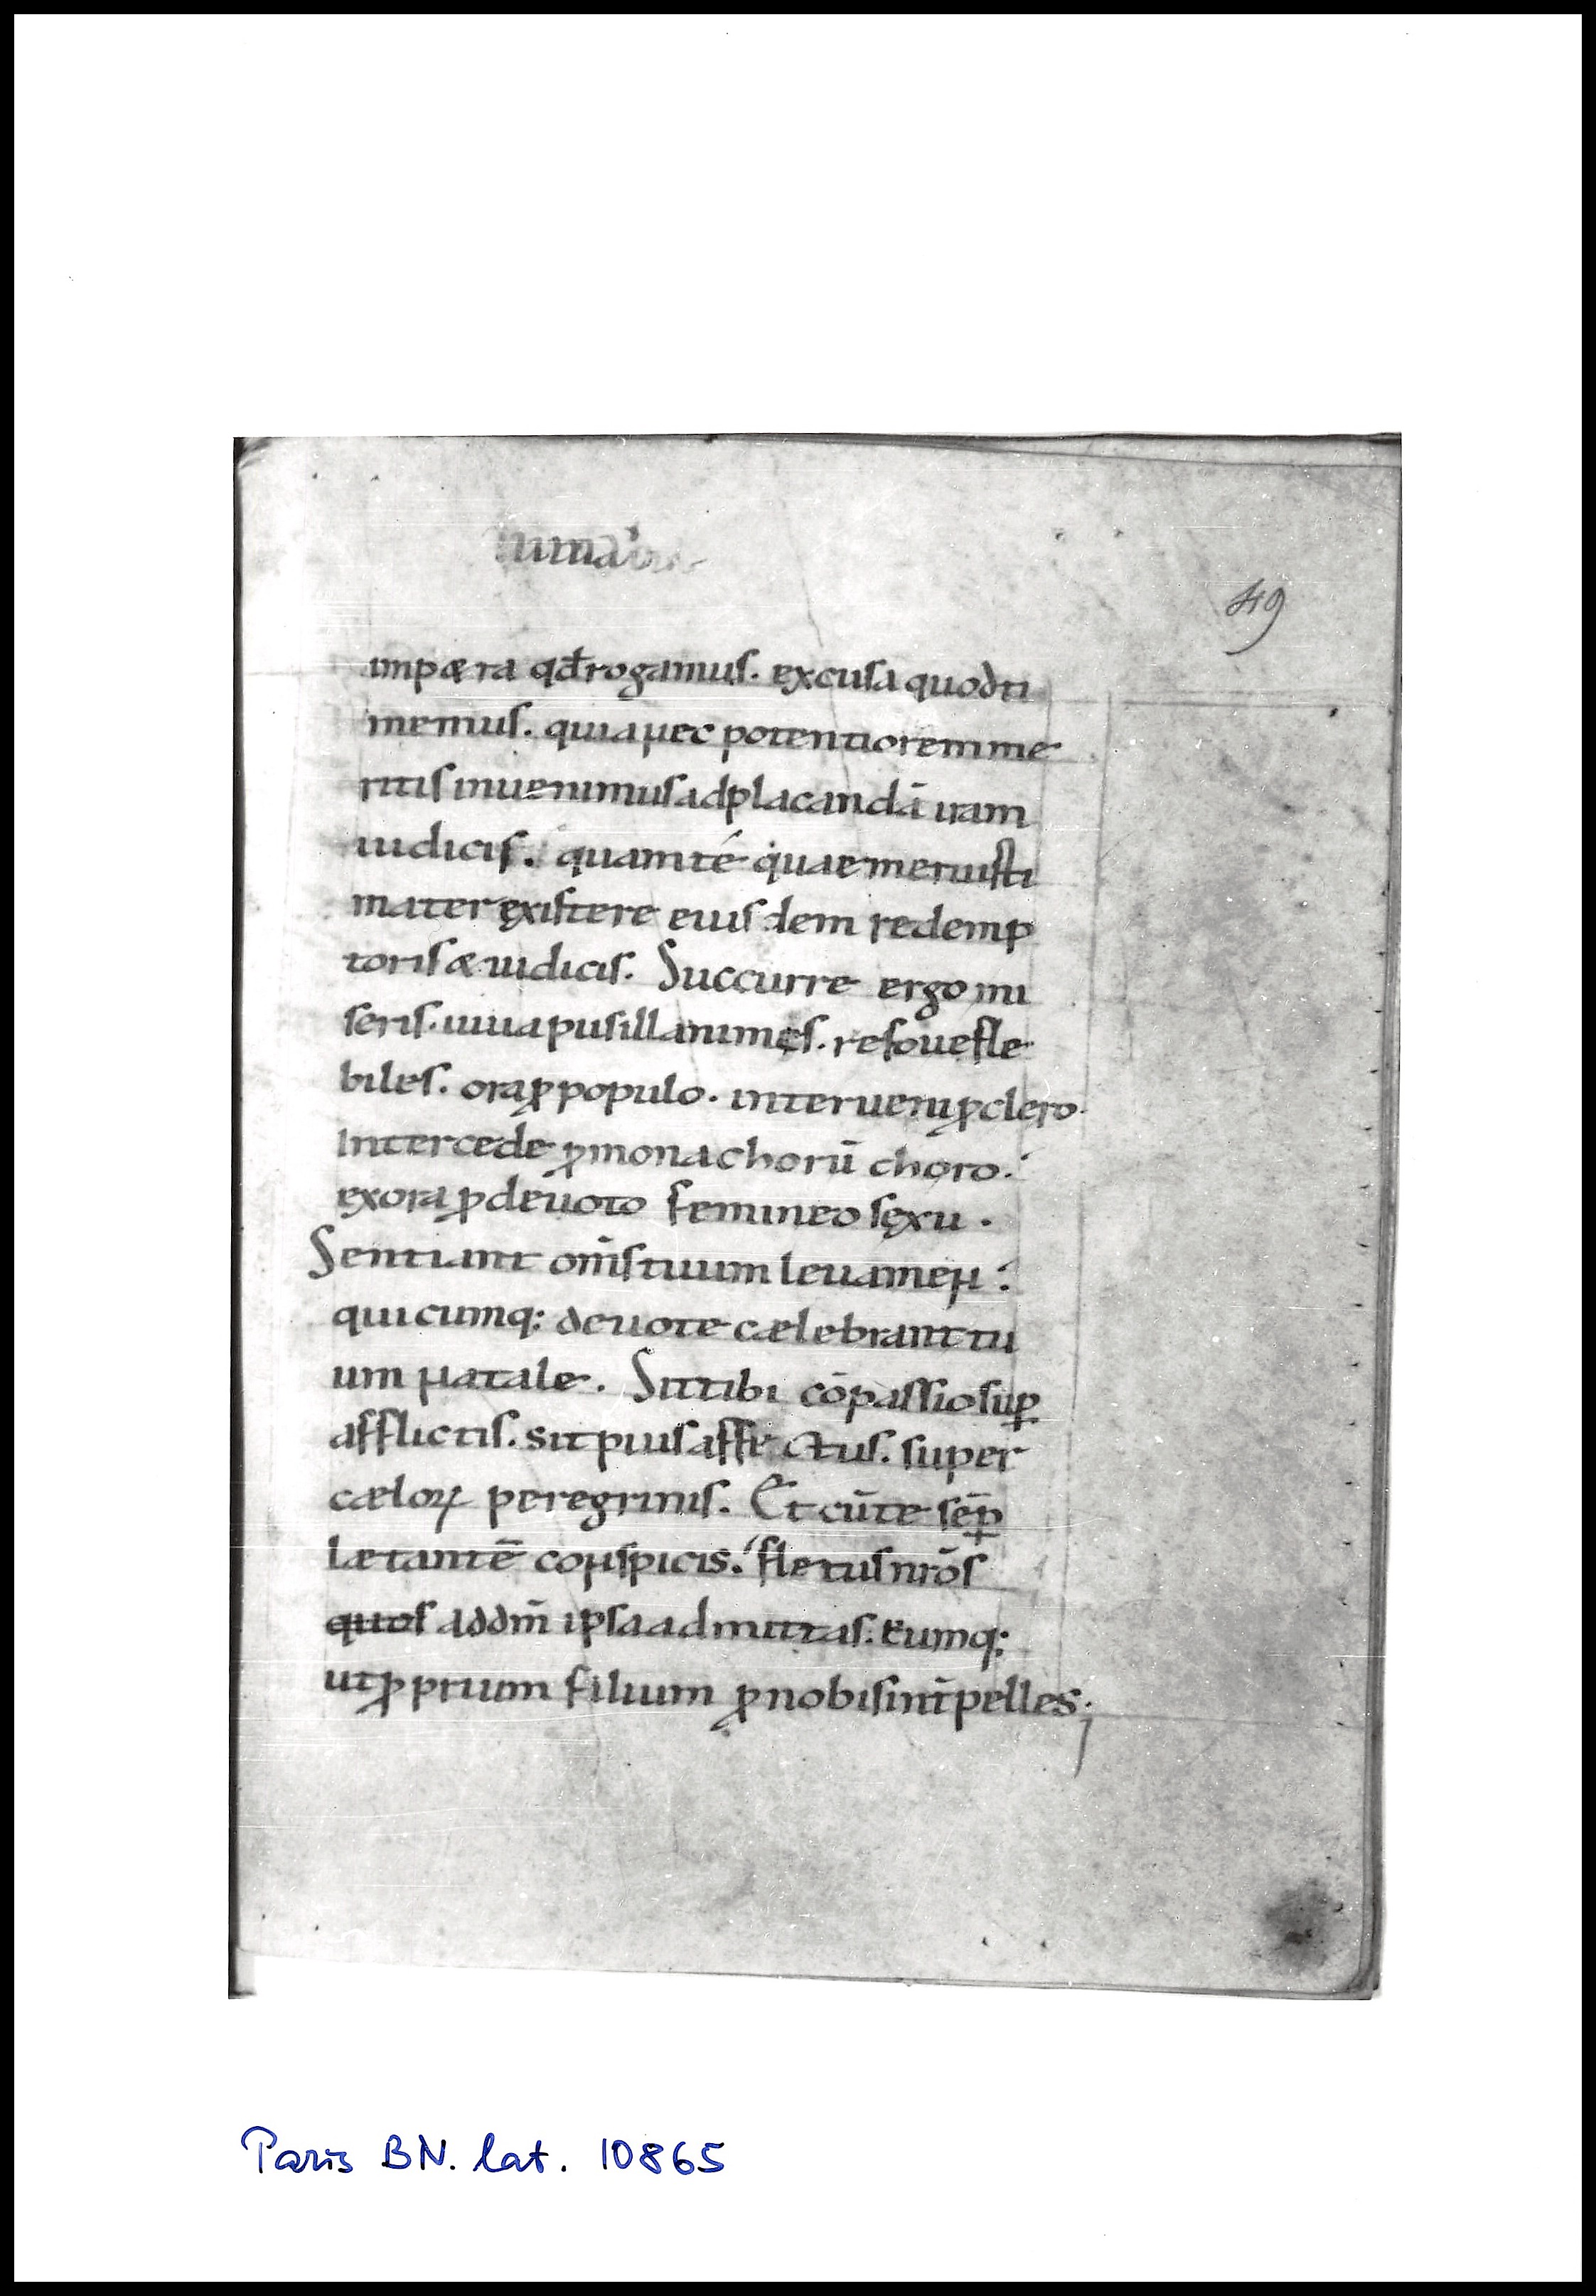 49
impetra qđ rogamus. excusa quod ti
memus. quia nec potentiorem me
ritis inuenimus ad placandā iram
iudicis. quam té quae meruisti
mater ęxistere eiusdem redemp
toris & iudicis. Succurre ergo mi
seris. iuua pusillanimes. refoue fle
biles. ora ꝓ populo. interueni ꝓ clero.
intercede ꝓ monachorū choro.
exora ꝓ deuoto femineo sęxu.
Sentiant om̄s tuum leuamen.
quicumq: deuote cælebrant tu
um natale. Sit tibi cōpassio suꝑ
afflictis. sit pius affectus. super
cæloꝝ peregrinis. Et cū te sēꝑ
lætantē conspicis. fletus nr̄os
quos ad dn̄m ipsa admittas. Eumq:
ut ꝓprium filium ꝓ nobis int̄pelles.
Paris BN. lat. 10865